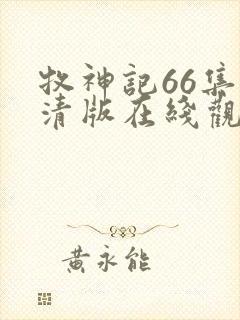 牧神記66集
清版在綫觀
黃永能